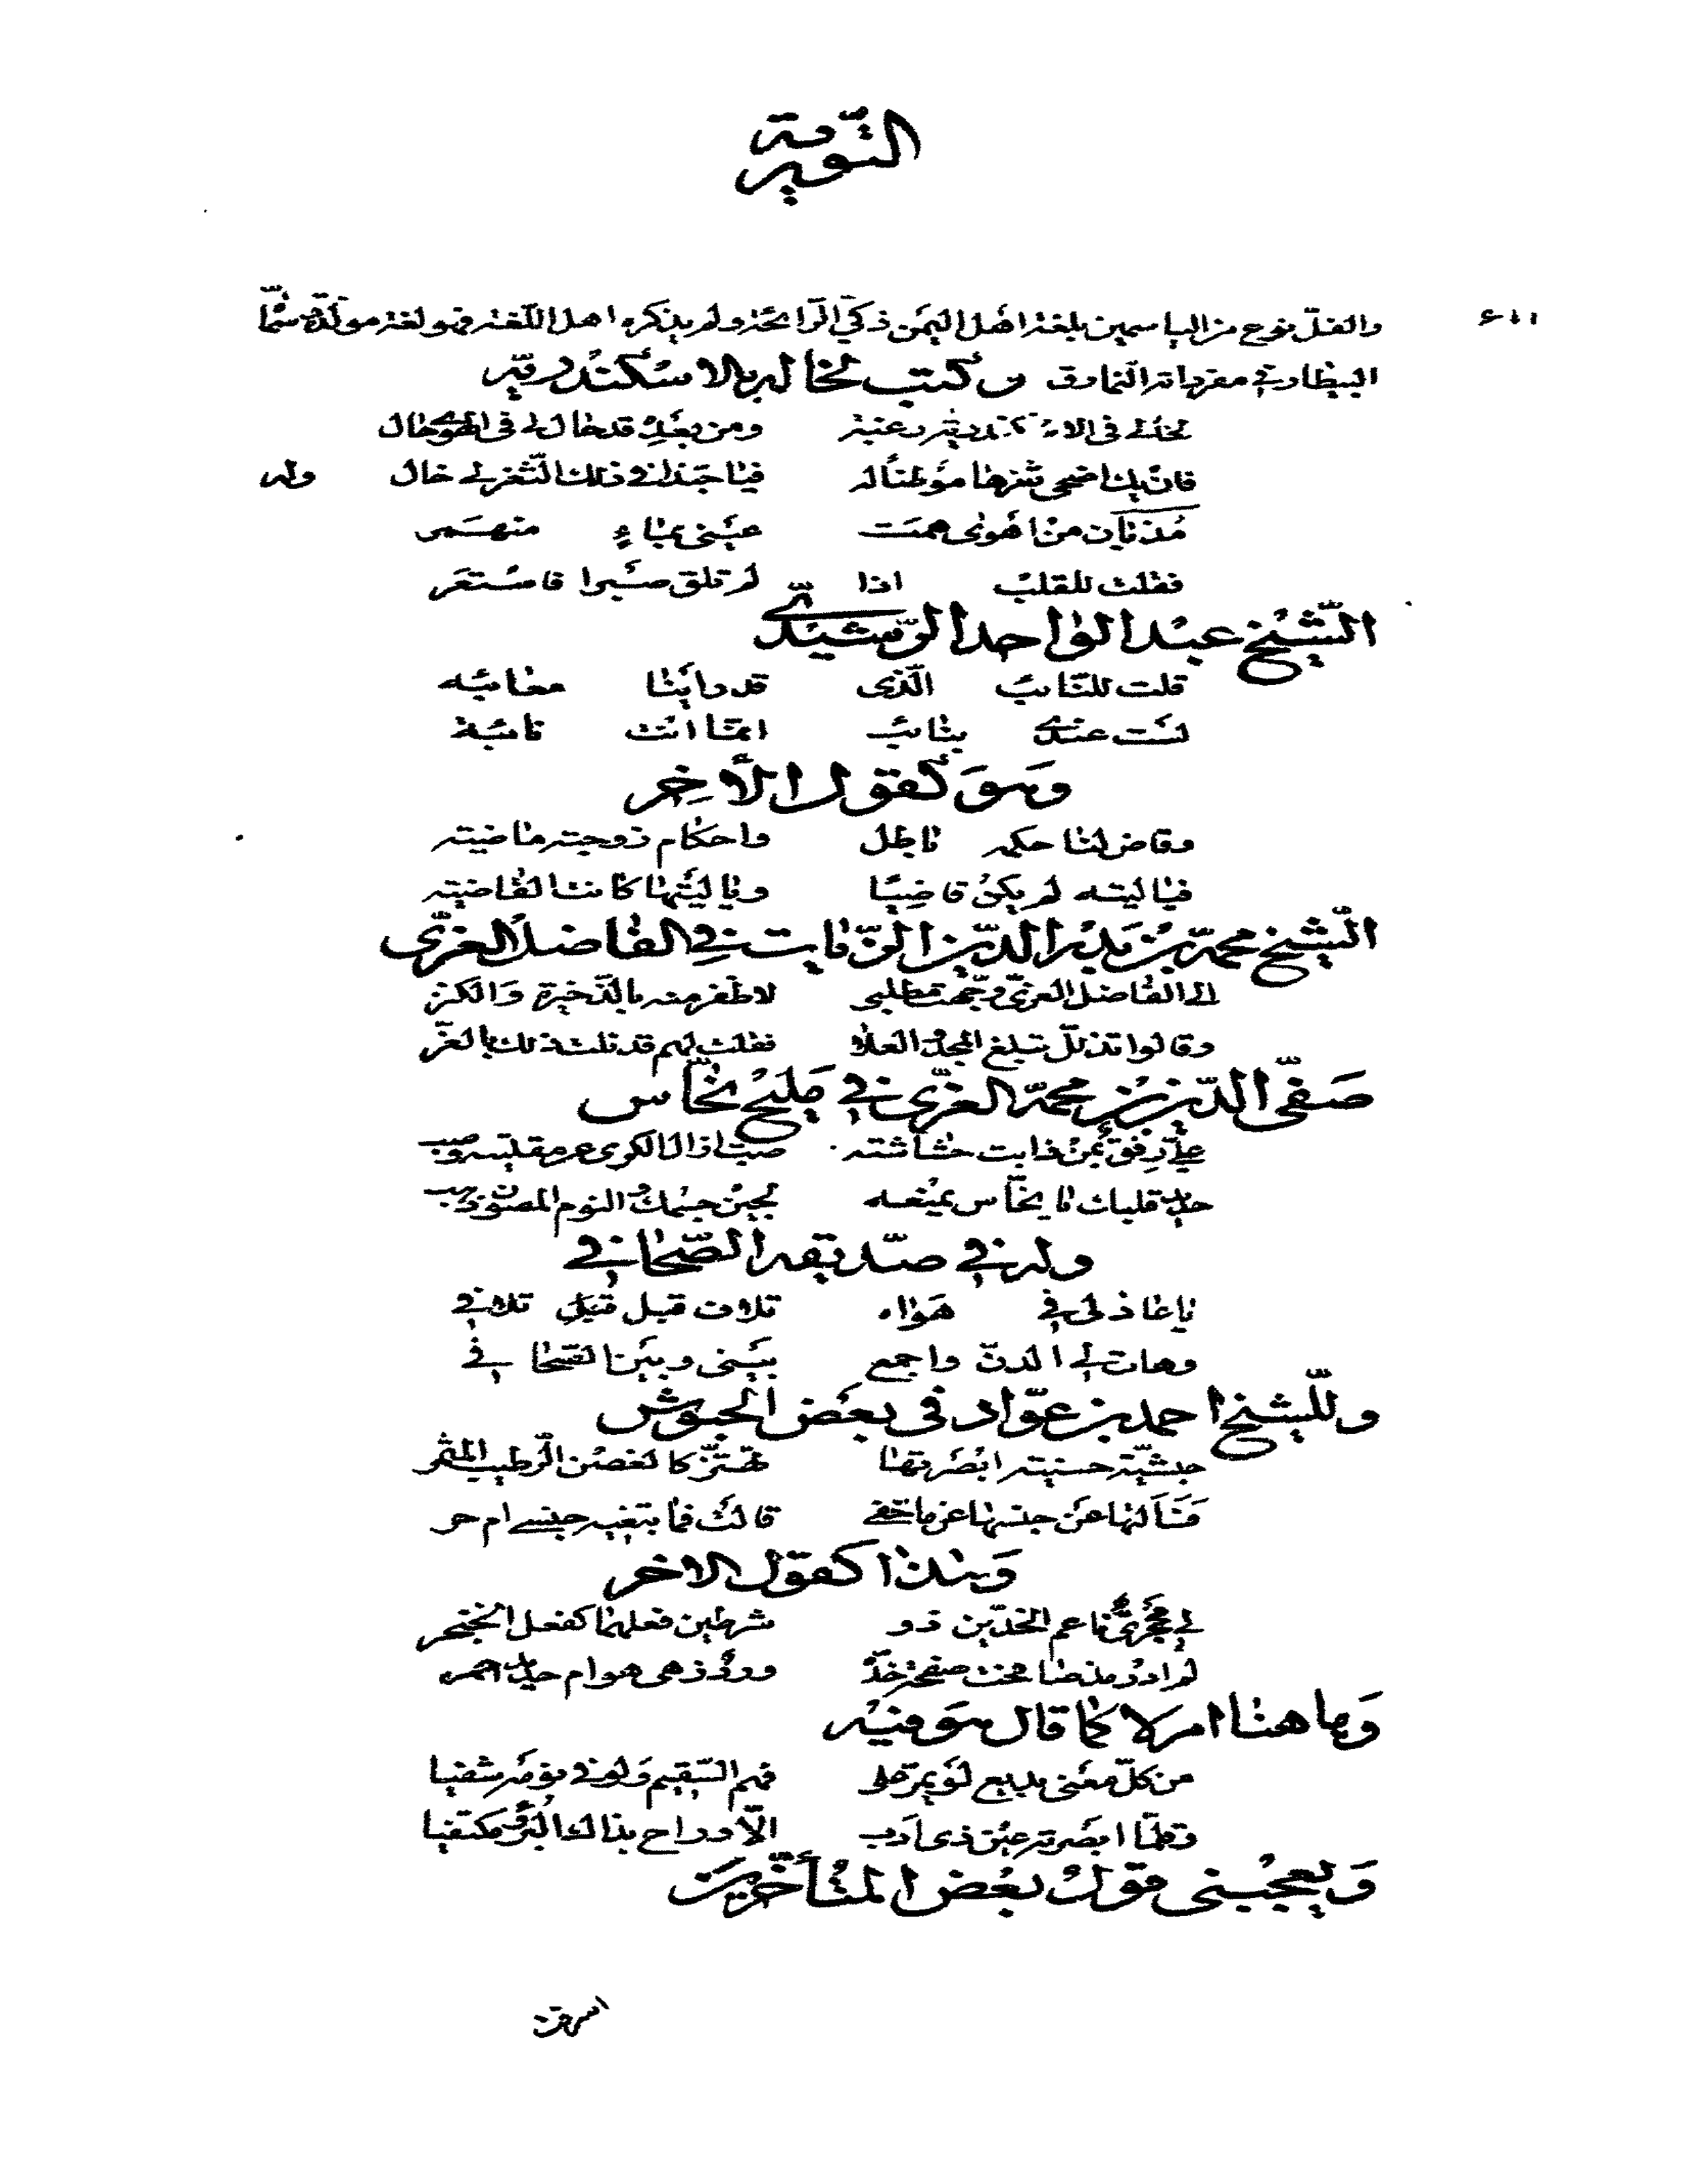 التورية
والفلّ نوع من الياسمين بلغة اهل اليمن ذكيّ الرائحة ولم يذكره اهل اللّغة فهو لغة مولّدة سمّا
البيطار في مفرداته النمارق وكتب لخاله بالاسكندريّة
لخالي في الاسكندرية رغبة ومن بعده قد خال لي في الهوى خال
فان يك اضحى ثغرها موطنا له فيا حبّذا في ذلك الثّغر لي خال وله
مذ بان من اهوى همت عيني بماء منهمر
فقلت للقلب اذا لم تلق صبرا فاستعر
الشّيخ عبد الواحد الرّشيدي
قلت للنّائب الّذي قد رأينا معائبه
لست عندي بنائب انّما انت نائبة
وهو كقول الأخر
وقاض لنا حكمه باطل واحكام زوجته ماضيته
فيا ليته لم يكن قاضيا ويا ليتها كانت القاضيته
الشّيخ محمّد بن بدر الدّين الزّيات في الفاضل الغزّى
الى الفاضل الغزّى وجّهت مطلبي لاظفر منه بالذّخيرة والكنز
وقالوا تذلّل تبلغ المجد العلا فقلت لهم قد نلت ذلك بالغزّ
صفّى الدّين بن محمّد الغزّى في مليح نحّاس
على رفق بمن ذابت حشاشته صبّ اذا الكرى عن مقلتيه
حديد قلبك يا نحّاس يمنعه لجين جسمك والنوم المصون
وله في صديقه الصّحافي
يا عاذلى في هواه تلاف قبل تلافي
وهات لي الدنّ واجمع بيني وبين الصّحافي
وللشيخ احمد بن عوّاد في بعض الحبوش
حبشيّة حسنيته ابصرتها تهتزّ كالغصن الرّطيب المثمر
فسألتها عن جنسها عن ما تخفى قالت فما تبغيه جنسي ام حر
وهذا كقول الاخر
لي ناعم الخدّين ذو شرطين فعلهما كفعل الخنجر
لم ادر مذ صفحة خدّه وردّ زهى هو ام حديد احمر
وما هنا امر لا كما قال هو فيه
من كلّ معنى بديع لو يمرّ على فهم السّقيم ولو في نومه شفيا
وكلّما ابصرته عين ذى ادب الّا وراح بذاك مكتفيا
ويعجبني قول بعض المتأخّرين